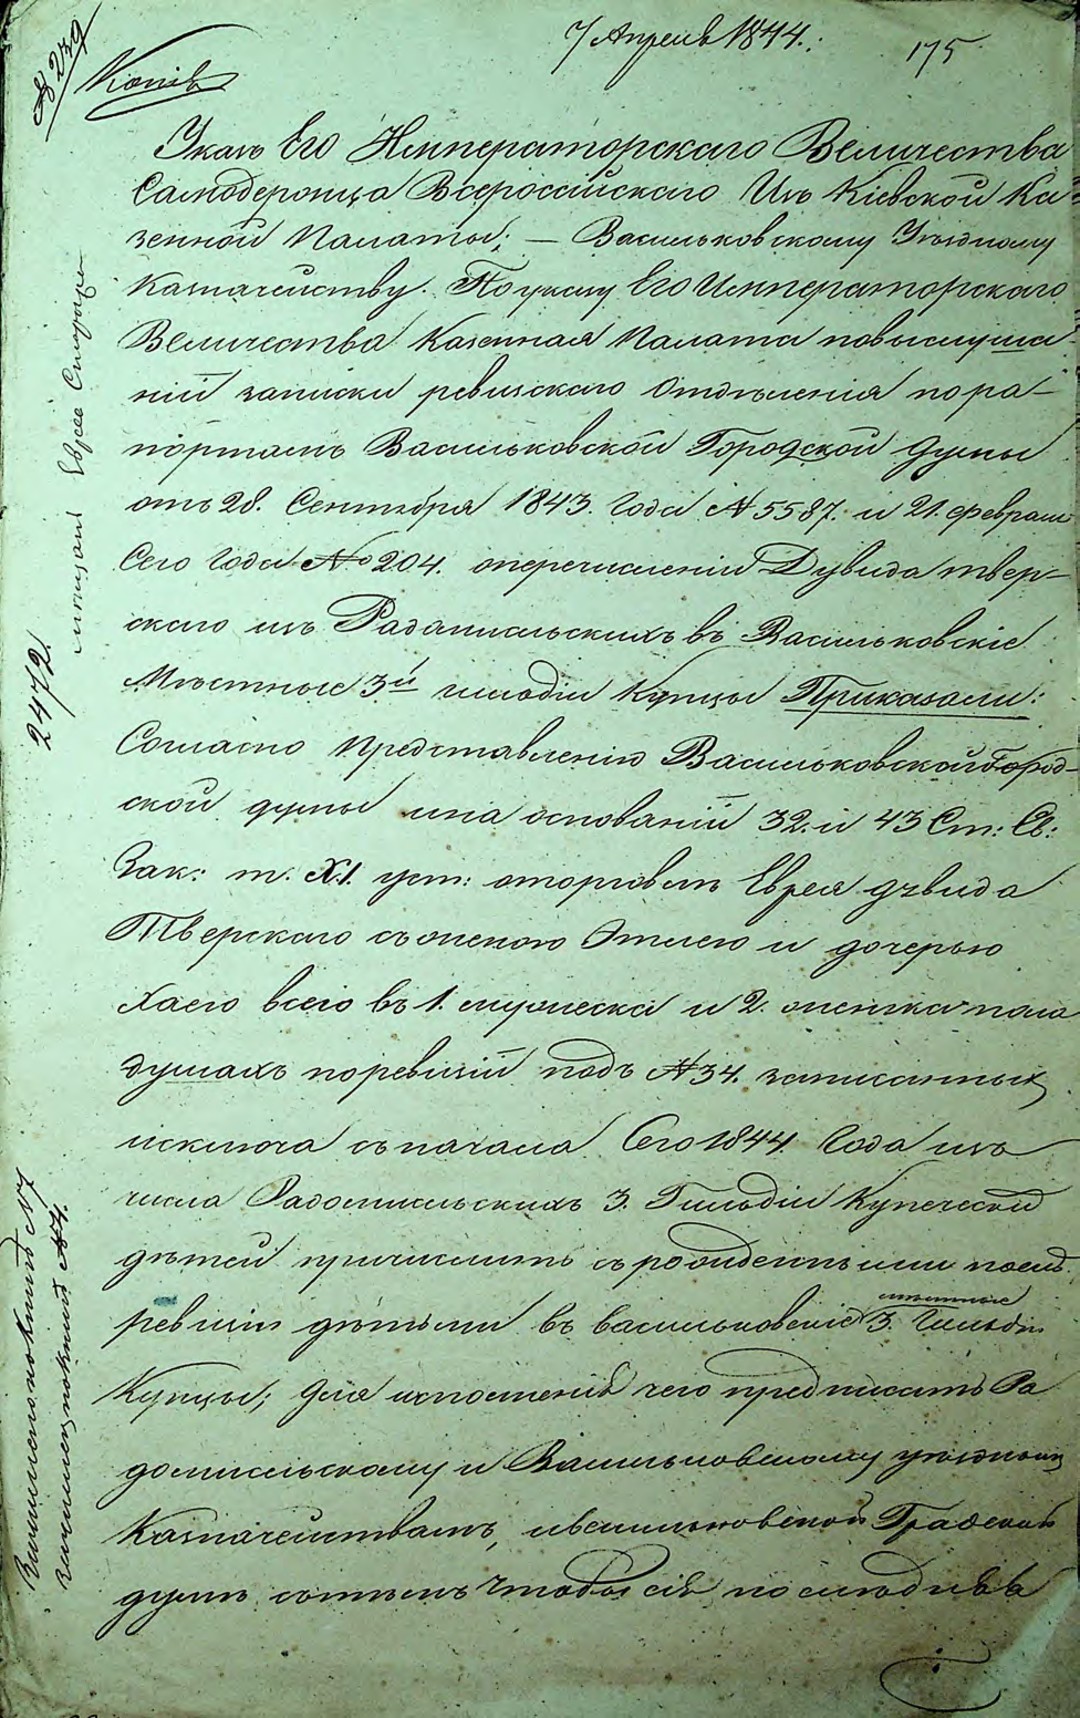 7 Апреля 1844.
175
№ 239
Копія
Указъ Его Императорскаго Величества
Самодержца Всероссійскаго Изъ Кіевской Ка
зенной Палаты; — Васильковскому Уѣздному
Казначейству. По указу Его Императорскаго
Величества Казенная Палата по выслуша
ніи записки ревизскаго Отдѣленія по ра-
портамъ Васильковской Городской Думы
отъ 28. Сентября 1843. Года № 5587. и 21. февраля
Сего Года № 204. о перечисленіи Дувида твер-
скаго изъ Радомисльскихъ въ Васильковскіе
Мѣстные 3й гильдіи Купцы Приказали:
Согласно Представленію Васильковской Город-
ской думы и на основаніи 32. и 43 Ст: Св:
Зак: т. XI. уст: о торговлѣ Еврея дувида
Тверскаго съ женою Этлею и дочерью
Хаею всего въ 1. мужеска и 2. женска пола
душахъ по ревизіи подъ № 34. записанныхъ
исключа съ начала Сего 1844. Года изъ
числа Радомисльскихъ 3. Гильдіи Купеческой
дѣтей причислить съ рожденными послѣ
ревизіи дѣтьми въ васильковскіе 3. Гильдіи
мѣстные
Купцы; для исполненія чего предписать Ра
домисльскому и Васильковскому уѣзднымъ
Казначействамъ, и васильковской Градской
думѣ съ тѣмъ чтобы сія послѣдняя
2472.
мѣщане Евреи